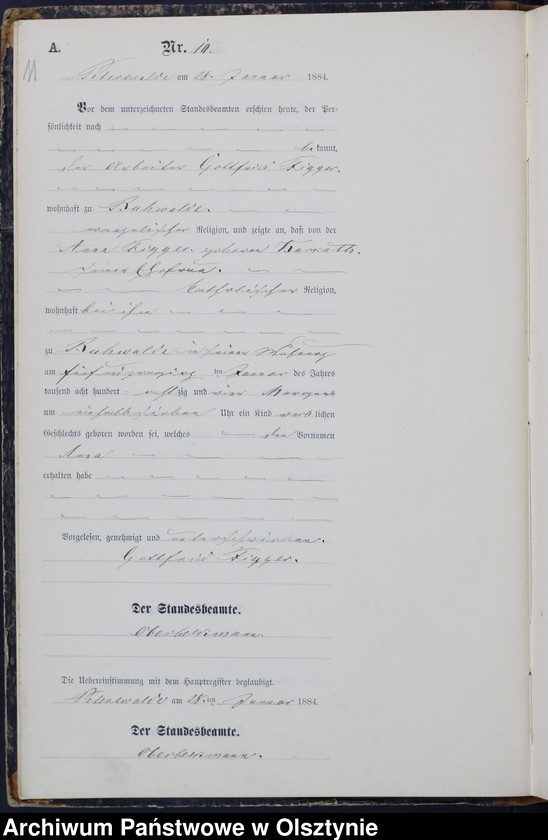 A. Nr. 10.
11
am 28. Januar 1884.
Vor dem unterzeichneten Standesbeamten erschien heute, der Per-
sönlichkeit nach
be kannt,
der Arbeiter Gottfried Figger.
wohnhaft zu Buhwalde.
evangelischer Religion, und zeigte an, daß von der
Anna Figger geborene
seiner Ehefrau.
katholischer Religion,
wohnhaft bei ihm
zu Buhwalde in seiner Wohnung
am fünf und zwanzig ten Januar des Jahres
tausend acht hundert acht zig und vier Morgens
um einhalb sieben Uhr ein Kind weib lichen
Geschlechts geboren worden sei, welches den Vornamen
Anna
erhalten habe
Vorgelesen, genehmigt und unterschrieben.
Gottfried Figger.
Der Standesbeamte.
Die Uebereinstimmung mit dem Hauptregister beglaubigt.
am 28. ten Januar 1884.
Der Standesbeamte.
Archiwum Państwowe w Olsztynie